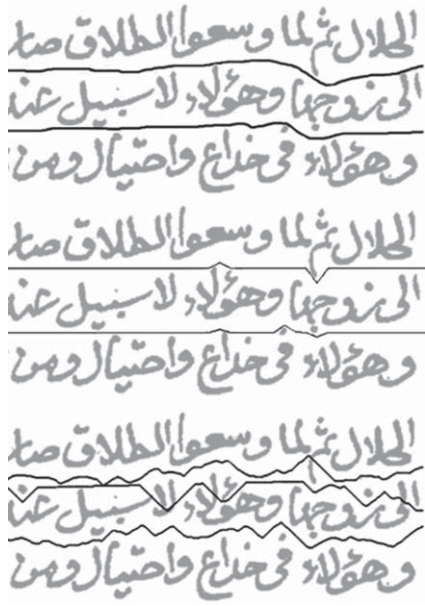 الحلال ثم لما وسعوا الطلاق صار
الى زوجها وهؤلاء لا سبيل عند
وهؤلاء في خداع واحتيال ومن
الحلال ثم لما وسعوا الطلاق صار
الى زوجها وهؤلاء لا سبيل عند
وهؤلاء في خداع واحتيال ومن
الحلال ثم لما وسعوا الطلاق صار
الى زوجها وهؤلاء لا سبيل عند
وهؤلاء في خداع واحتيال ومن